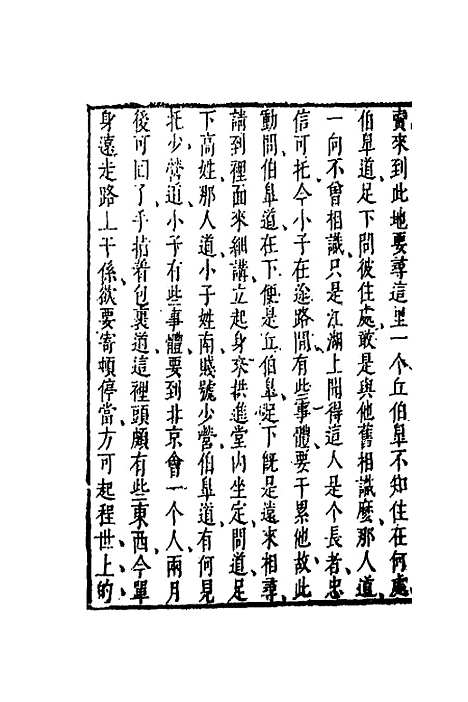 賫來到此地要尋這里一个丘伯皐不知住在何處
伯皐道足下問彼住處敢是與他舊相識麽那人道
一向不曾相識只是江湖上聞得這人是个長者忠
信可托今小子在途路間有些事體要干累他故此
動問伯皐道在下便是丘伯皐足下旣是遠來相尋
請到裡面來細講立起身來拱進堂內坐定問道足
下高姓那人道小子姓南賤號少營伯皐道有何見
托少營道小子有些事體要到北京會一个人兩月
後可回了手指着包裹道這裡頭頗有些東西今單
身遠走路上干係欲要寄頓停當方可起程世上的